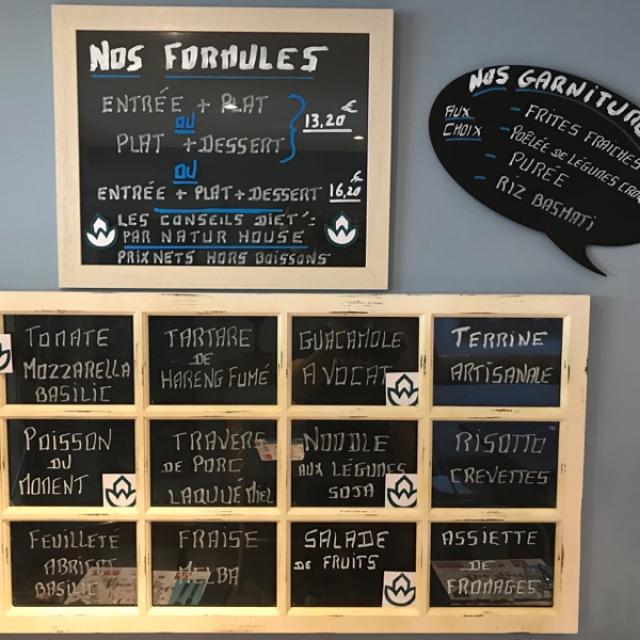 NOS FORMULES
ENTRÉE + PLAT
OU
13,20 €
PLAT + DESSERT
OU
ENTRÉE + PLAT + DESSERT 16,20 €
LES CONSEILS DIÉT':
PAR NATUR HOUSE
PRIX NETS HORS BOISSONS
NOS GARNITUR
AUX CHOIX
- FRITES FRAICHES
- POÊLÉE DE LÉGUMES
- PURÉE
- RIZ BASMATI
TOMATE
MOZZARELLA
BASILIC
TARTARE
DE
HARENG FUMÉ
GUACAMOLE
AVOCAT
TERRINE
ARTISANALE
POISSON
DU
MOMENT
TRAVERS
DE PORC
LAQUÉ MIEL
NOODLE
AUX LÉGUMES
SOJA
RISOTTO
CREVETTES
FEUILLETÉ
ABRICOT
BASILIC
FRAISE
MELBA
SALADE
DE FRUITS
ASSIETTE
DE
FROMAGES